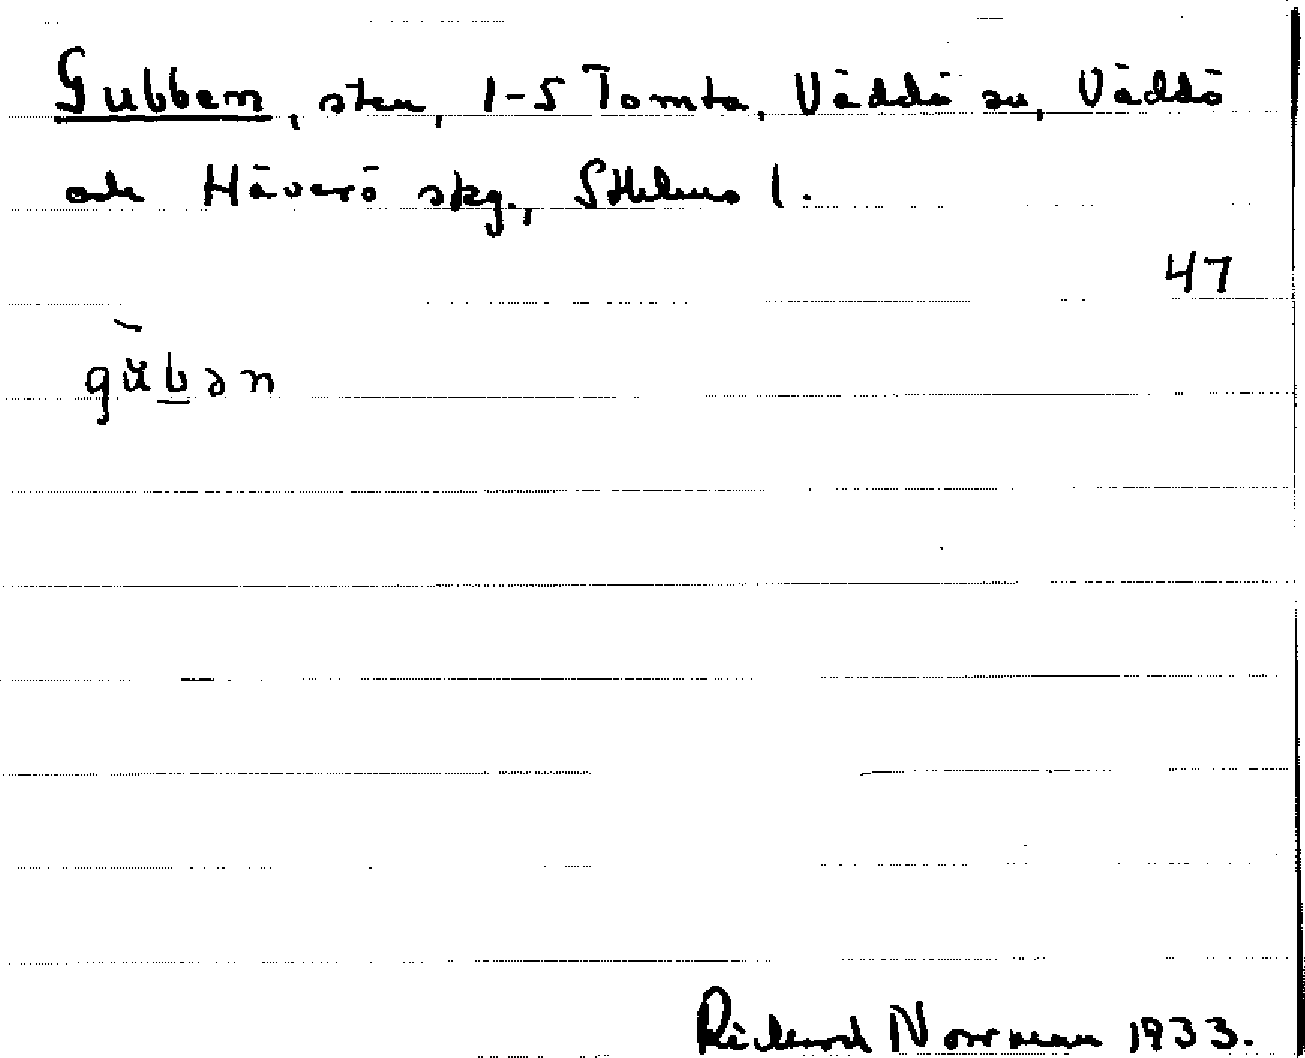 Gubben, sten, 1-5 Tomta, Väddö sn, Väddö
och Häverö skg., Sthlms l.
47
gu̇bən
Richard Norrman 1933.